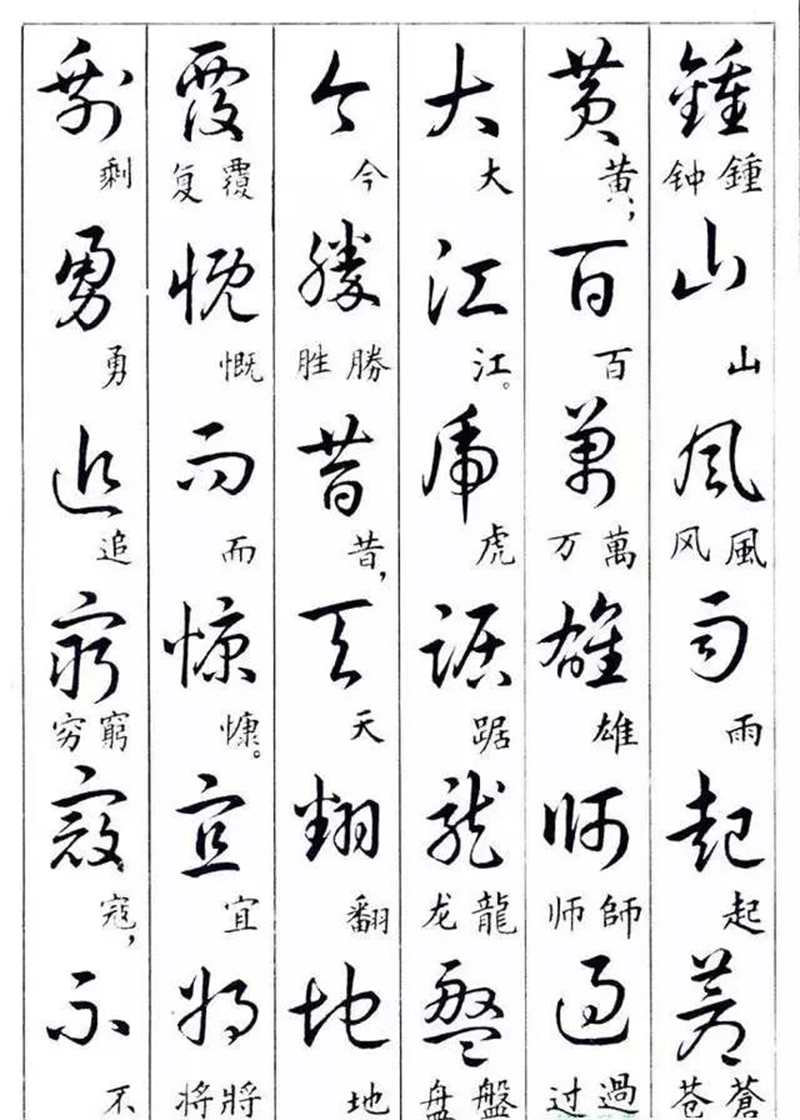 鍾 鍾钟 山 山 風 風风 雨 雨 起 起 蒼 蒼苍
黄 黄； 百 百 萬 萬万 雄 雄 師 師师 過 過过
大 大 江 江。 虎 虎 踞 踞 龍 龍龙 盤 盤盘
今 今 勝 勝胜 昔 昔， 天 天 翻 翻 地 地
覆 覆复 慨 慨 而 而 慷 慷。 宜 宜 將 將将
剩 剩 勇 勇 追 追 窮 窮穷 寇 寇， 不 不